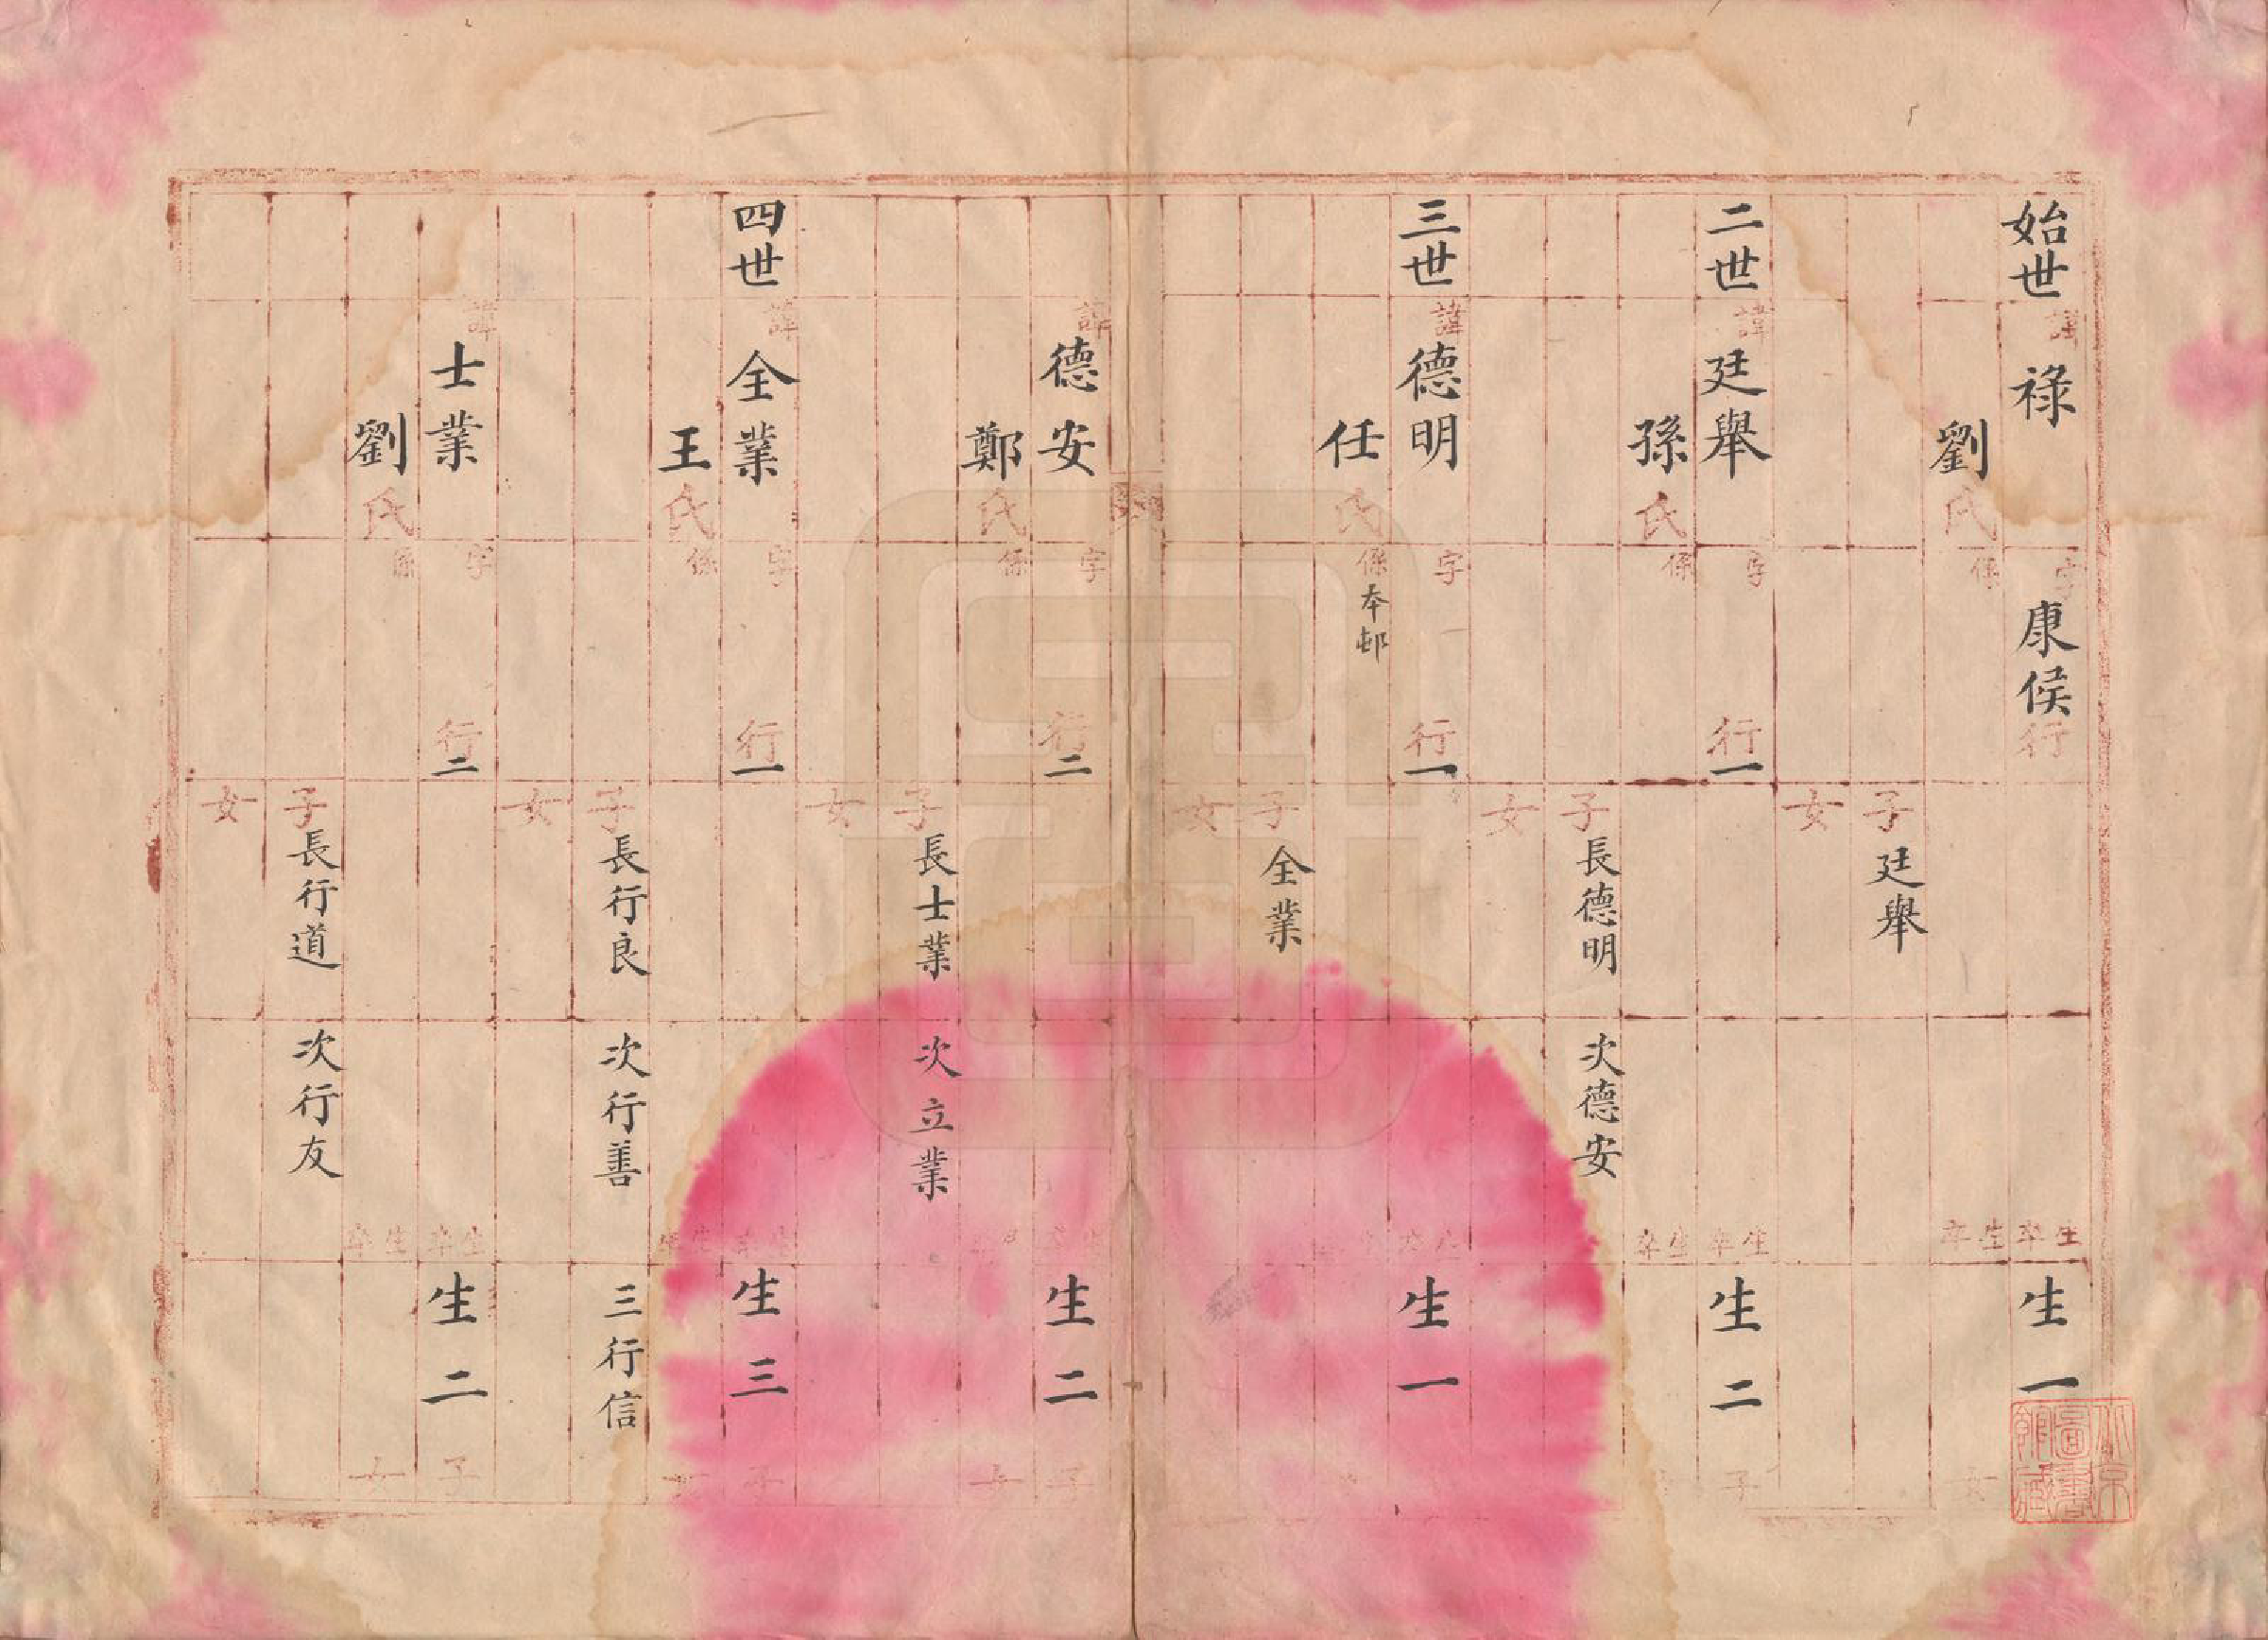 始世 諱 祿 字 康侯 行 生 卒 生一
劉氏 係 生 卒 女
子 廷舉
女
二世 諱 廷舉 字 行一 生 卒 生二 子
孫氏 係 生 卒
子 長德明 次德安
女
三世 諱 德明 字 行一 生一
任氏 係 本邨
子 全業
女
諱 德安 字 行二 生二 子
鄭氏 係 女
子 長士業 次立業
女
四世 諱 全業 字 行一 生三 子
王氏 係
子 長行良 次行善 三行信
女
諱 士業 字 行二 生 卒 生二 子
劉氏 係 生 卒 女
子 長行道 次行友
女
北京圖書館藏